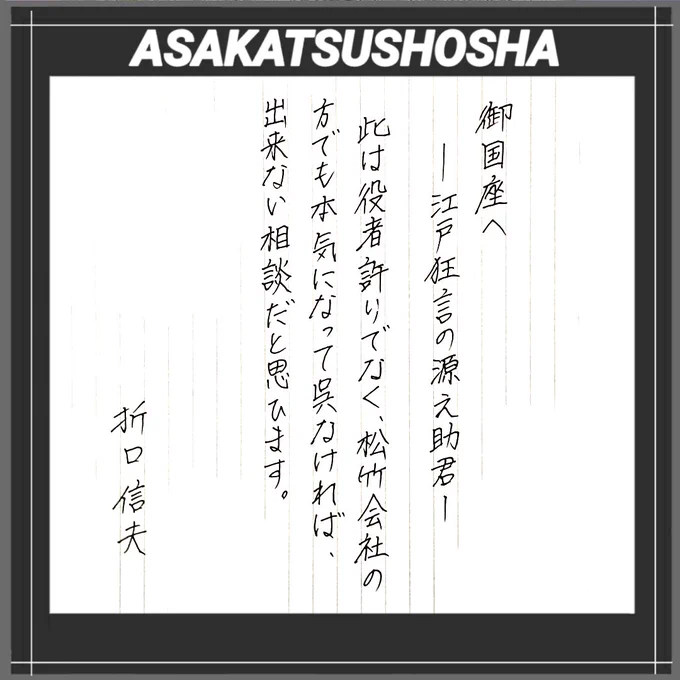 ASAKATSUSHOSHA
御国座へ
―江戸狂言の源之助君―
此は役者許りでなく、松竹会社の
方でも本気になって呉なければ、
出来ない相談だと思ひます。
折口信夫